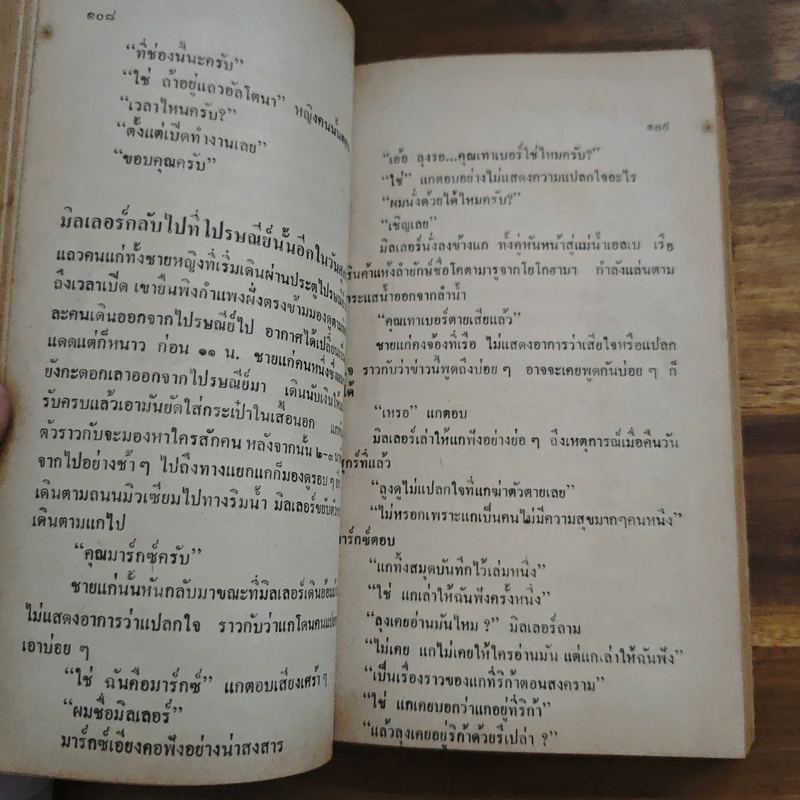 ๑๐๘
“ที่ช่องนี้นะครับ”
“ใช่ ถ้าอยู่แถวอัลโตนา” หญิงคนนั้น
“เวลาไหนครับ?”
“ตั้งแต่เปิดทำงานเลย”
“ขอบคุณครับ”
มิลเลอร์กลับไปที่ไปรษณีย์นั้นอีกในวัน
แลวคนแก่ทั้งชายหญิงที่เริ่มเดินผ่านประตู
ถึงเวลาเปิด เขายืนพิงกำแพงฝั่งตรงข้ามมองดู
ละคนเดินออกจากไปรษณีย์ไป อากาศได้
แดดแต่ก็หนาว ก่อน ๑๑ น. ชายแก่คนหนึ่ง
ยังกะดอกเลาออกจากไปรษณีย์มา เดินนับเงิน
รับครบแล้วเอามันยัดใส่กระเป๋าในเสื้อนอก
ตัวราวกับจะมองหาใครสักคน หลังจากนั้น ๒-๓
จากไปอย่างช้า ๆ ไปถึงทางแยกแก่ก็มองดูรอบ ๆ
เดินตามถนนมิวเซียมไปทางริมน้ำ มิลเลอร์ขยับตัว
เดินตามแกไป
“คุณมาร์กซ์ครับ”
ชายแก่นั้นหันกลับมาขณะที่มิลเลอร์เดิน
ไม่แสดงอาการว่าแปลกใจ ราวกับว่าแกโดนคน
เอาบ่อย ๆ
“ใช่ ฉันคือมาร์กซ์” แกตอบเสียงเศร้า ๆ
“ผมชื่อมิลเลอร์”
มาร์กซ์เอียงคอฟังอย่างน่าสงสาร
๑๐๙
“เอ้อ ลุงรอ...คุณเทาเบอร์ใช่ไหมครับ?”
“ใช่” แกตอบอย่างไม่แสดงความแปลกใจอะไร
“ผมนั่งด้วยได้ไหมครับ?”
“เชิญเลย”
มิลเลอร์นั่งลงข้างแก ทั้งคู่หันหน้าสู่แม่น้ำเอลเบ เรือ
สินค้าแห้งลำยักษ์ชื่อโคตามารูจากโยโกฮามา กำลังแล่นตาม
กระแสน้ำออกจากลำน้ำ
“คุณเทาเบอร์ตายเสียแล้ว”
ชายแก่คงจ้องที่เรือ ไม่แสดงอาการว่าเสียใจหรือแปลก
ใจ ราวกับว่าข่าวนี้พูดถึงบ่อย ๆ อาจจะเคยพูดกันบ่อย ๆ ก็
ได้
“เหรอ” แกตอบ
มิลเลอร์เล่าให้แกฟังอย่างย่อ ๆ ถึงเหตุการณ์เมื่อคืนวัน
ศุกร์ที่แล้ว
“ลุงดูไม่แปลกใจที่แกฆ่าตัวตายเลย”
“ไม่หรอกเพราะแกเป็นคนไม่มีความสุขมากๆคนหนึ่ง”
มาร์กซ์ตอบ
“แกทิ้งสมุดบันทึกไว้เล่มหนึ่ง”
“ใช่ แกเล่าให้ฉันฟังครั้งหนึ่ง”
“ลุงเคยอ่านมันไหม ?” มิลเลอร์ถาม
“ไม่เคย แกไม่เคยให้ใครอ่านมัน แต่แกเล่าให้ฉันฟัง”
“เป็นเรื่องราวของแกที่ริก้าตอนสงคราม”
“ใช่ แกเคยบอกว่าแกอยู่ที่ริก้า”
“แล้วลุงเคยอยู่ริก้าด้วยรึเปล่า ?”